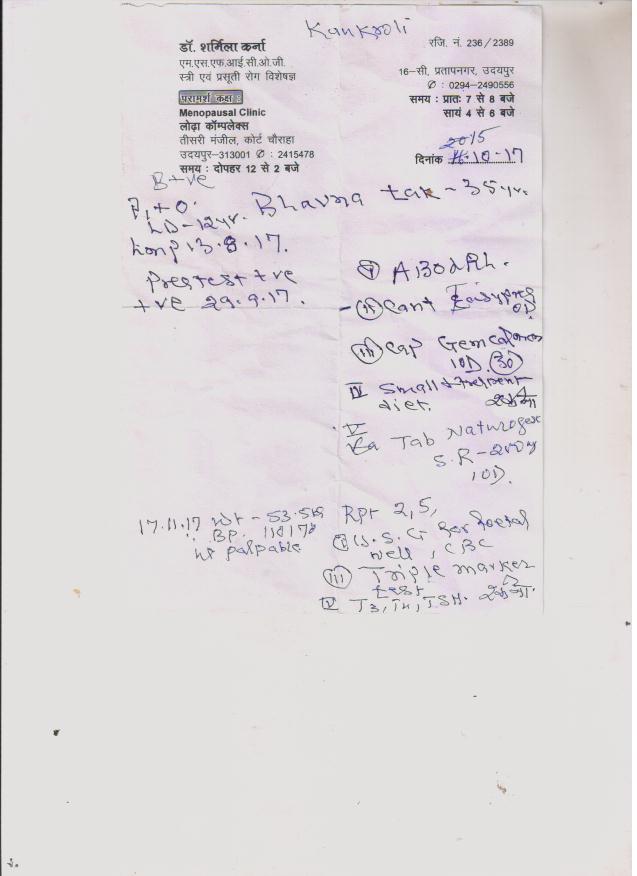 Kankroli
डॉ. शर्मिला कर्ना
एम.एस.एफ.आई.सी.ओ.जी.
स्त्री एवं प्रसूती रोग विशेषज्ञ
परामर्श कक्ष :
Menopausal Clinic
लोढ़ा कॉम्पलेक्स
तीसरी मंजील, कोर्ट चौराहा
उदयपुर-313001 ✆ : 2415478
समय : दोपहर 12 से 2 बजे
रजि. नं. 236/2389
16-सी, प्रतापनगर, उदयपुर
✆ : 0294-2490556
समय : प्रातः 7 से 8 बजे
सायं 4 से 6 बजे
2015
दिनांक 10-17
B+ve
P1+0. Bhavna tak - 35 yr.
LD-12yr.
Lmp 13.8.17.
Pregtest +ve
+ve 29.9.17.
ABO & Rh.
(ii) Cant
OD
(iii) Cap
1OD. (30)
IV Small & frequent
diet.
V
Tab
S.R-200
1OD.
17.11.17 wt - 53.5kg Rpt 2,5,
BP. 110/78
ut palpable
U.S.G for foetal
well, CBC
(iii) Triple marker
test
IV T3, T4, TSH.